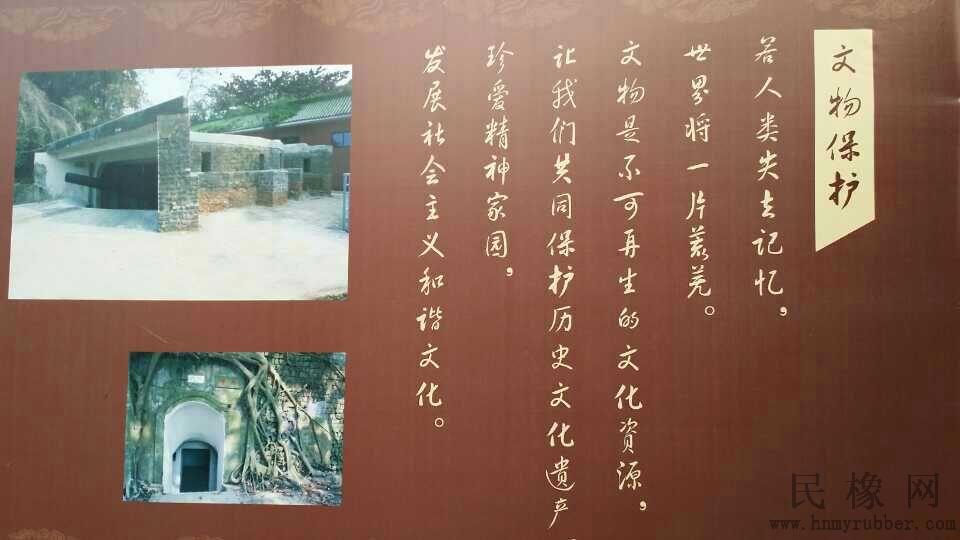 文物保护
若人类失去记忆，
世界将一片荒芜。
文物是不可再生的文化资源，
让我们共同保护历史文化遗产
珍爱精神家园，
发展社会主义和谐文化。
民橡网
www.hnmyrubber.com